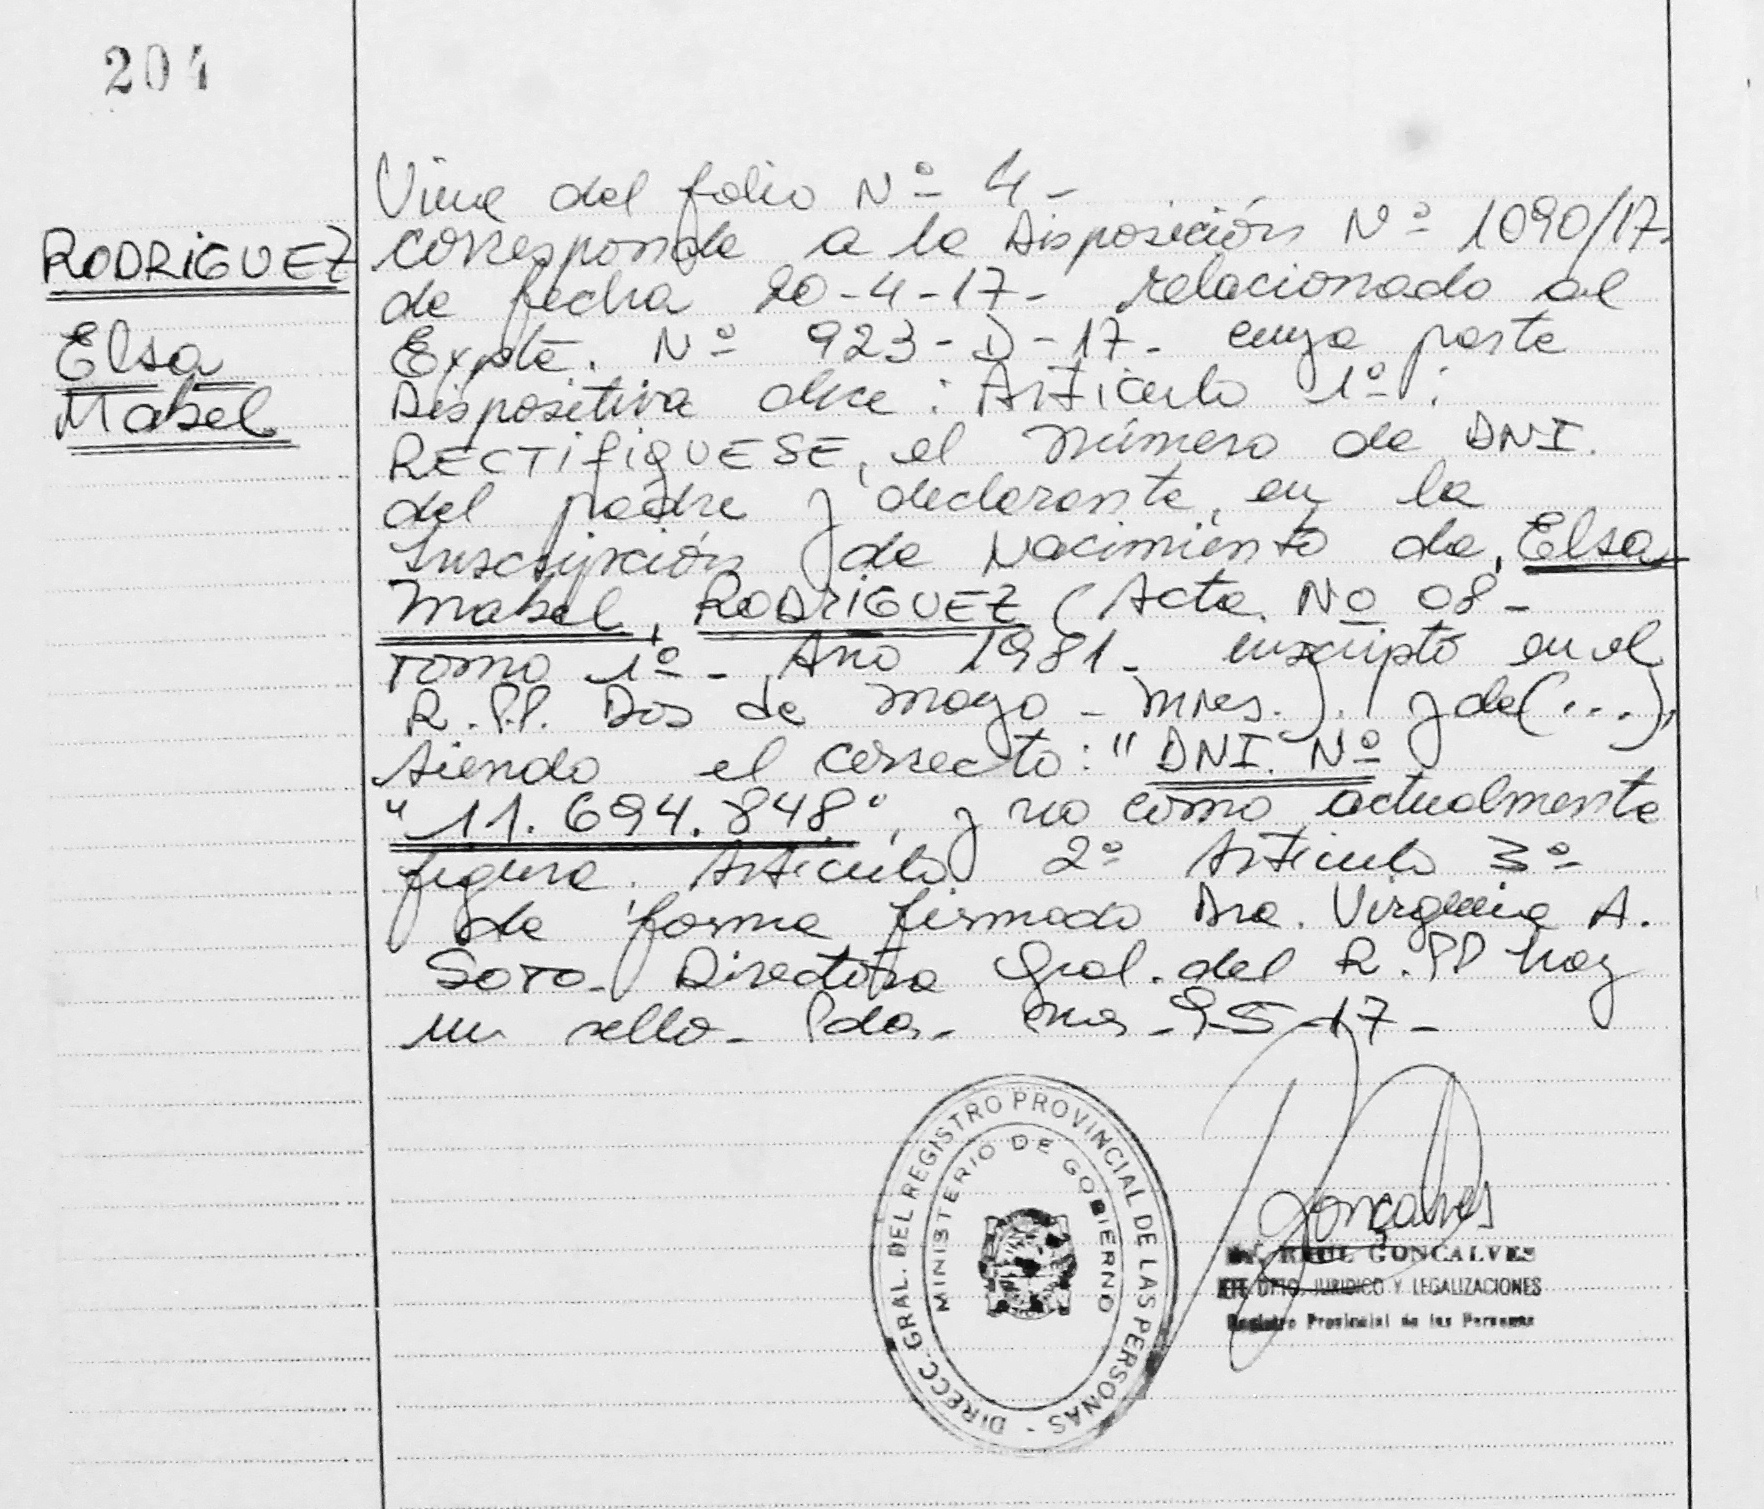 204
RODRIGUEZ
Elsa
Mabel
Viene del folio Nº 4-
corresponde a la Disposición Nº 1090/17.
de fecha 20-4-17- relacionado al
Expte. Nº 923-D-17- cuya parte
Dispositiva dice: Artículo 1º:
RECTIFIQUESE, el número de DNI.
del padre y declarante, en la
Inscripción de Nacimiento de, Elsa
Mabel, RODRIGUEZ (Acta Nº 08-
Tomo 1º- Año 1981- inscripto en el
R.P.P. Dos de Mayo - Mnes.). y de (...),
siendo el correcto: "DNI. Nº
"11.694.848", y no como actualmente
figura. Artículo 2º Artículo 3º
de forma firmado Dra. Virginia A.
Soto- Directora Gral. del R.PP hay
un sello- Pdas- Mnes-9-5-17-
DIRECC. GRAL. DEL REGISTRO PROVINCIAL DE LAS PERSONAS -
MINISTERIO DE GOBIERNO
Gonçalves
RAUL GONCALVES
JFE. DPTO. JURIDICO Y LEGALIZACIONES
Registro Provincial de las Personas